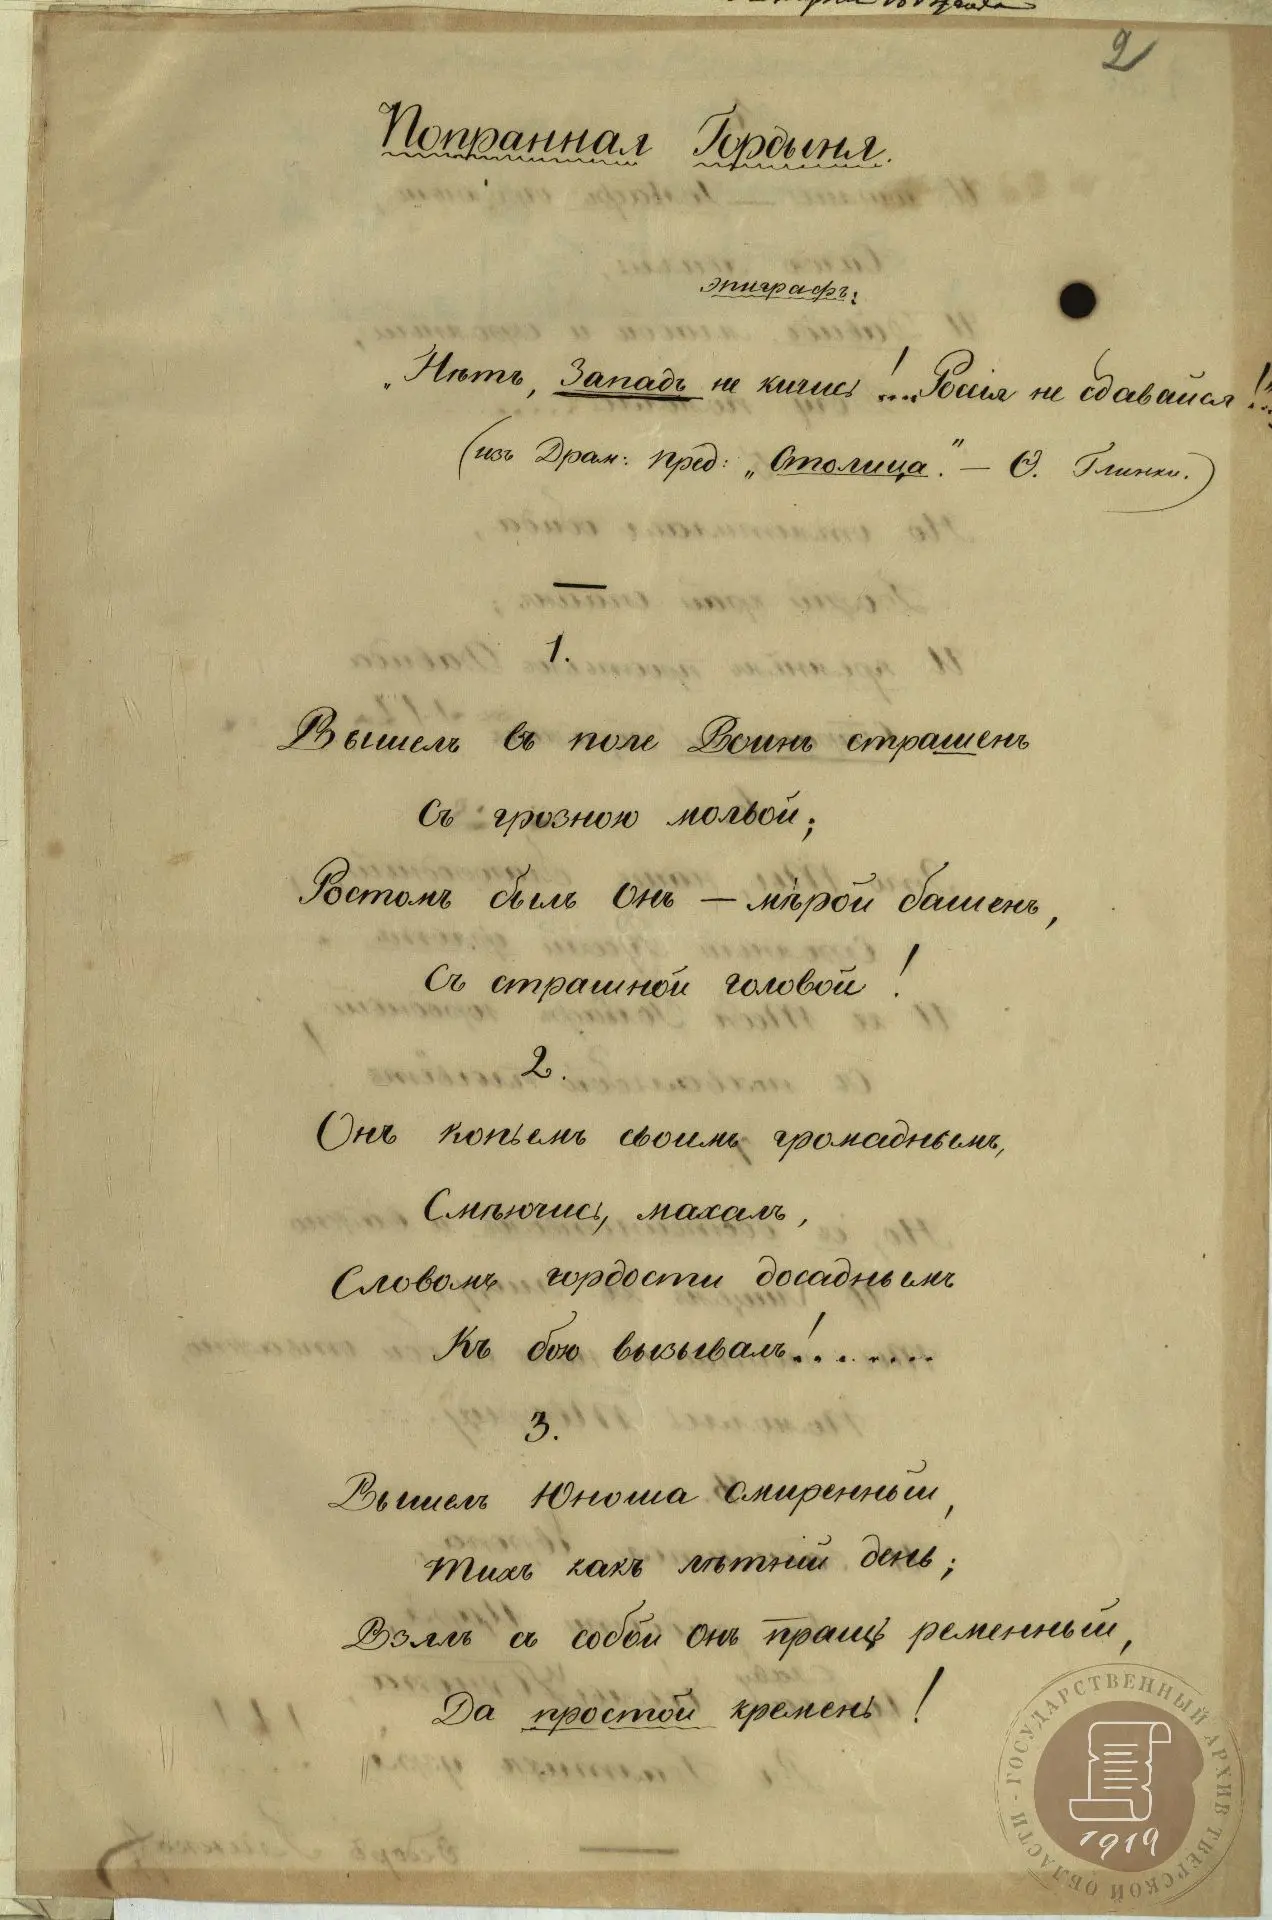 2
Попранная Гордыня.
эпиграфъ:
„Нѣтъ, Западъ не кичись!... Россія не сдавайся!!..."
(изъ Драм: пред: „Столица." — Ѳ. Глинки.)
1.
Вышелъ въ поле Воинъ страшенъ
Съ грозною молвой;
Ростомъ былъ онъ — мѣрой башенъ,
Съ страшной головой!
2.
Онъ копьемъ своимъ громаднымъ,
Смѣючись, махалъ,
Словомъ гордости досаднымъ
Къ бою вызывалъ!........
3.
Вышелъ Юноша смиренный,
Тихъ какъ лѣтній день;
Взялъ съ собой онъ пращъ ременный,
Да простой кремень!
ГОСУДАРСТВЕННЫЙ АРХИВ ТВЕРСКОЙ ОБЛАСТИ
1919